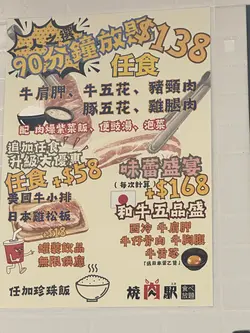 90分鐘放題138
任食
牛肩胛、牛五花、豬頸肉
豚五花、雞腿肉
配 肉燥紫菜飯、便豉湯、泡菜
追加任食
升級大優惠
任食+$58
美國牛小排
日本雞松板
味蕾盛宴
(每次計算)
+$168
和牛五品盛
西冷 牛肩胛
牛仔骨肉 牛胸腹
罐裝飲品
無限供應
任加珍珠飯
燒肉駅
食べ放題